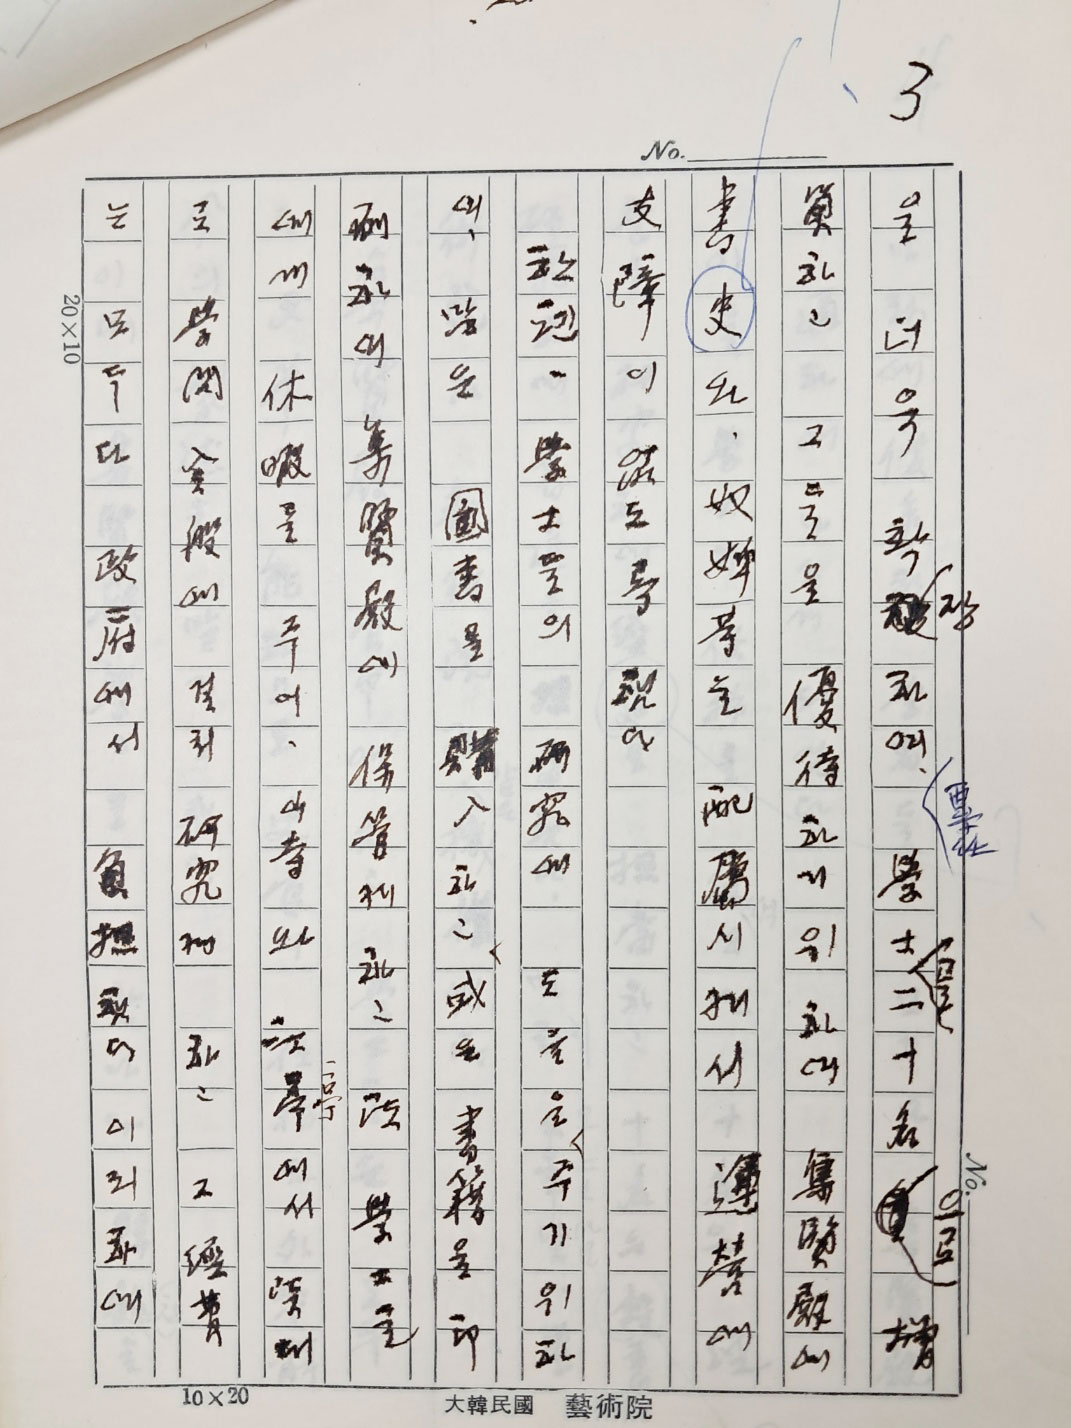 3
No.
을 더욱 확장하여, 學士를 二十名으로 增
員하고 그들을 優待하기 위하여 集賢殿에
書吏와, 奴婢等을 配屬시켜서 運營에
支障이 없도록 했다.
한편, 學士들의 研究에 도움을 주기 위하
여, 많은 圖書를 購入하고 或은 書籍을 印
刷하여 集賢殿에 保管케 하고 学士들
에게 休暇를 주어, 山寺와 亭에서 読書
로 学問全般에 걸쳐 研究케 하고 그 經費
는 모두 다 政府에서 負擔했다. 이리하여
No.
20×10
10×20
大韓民國 藝術院